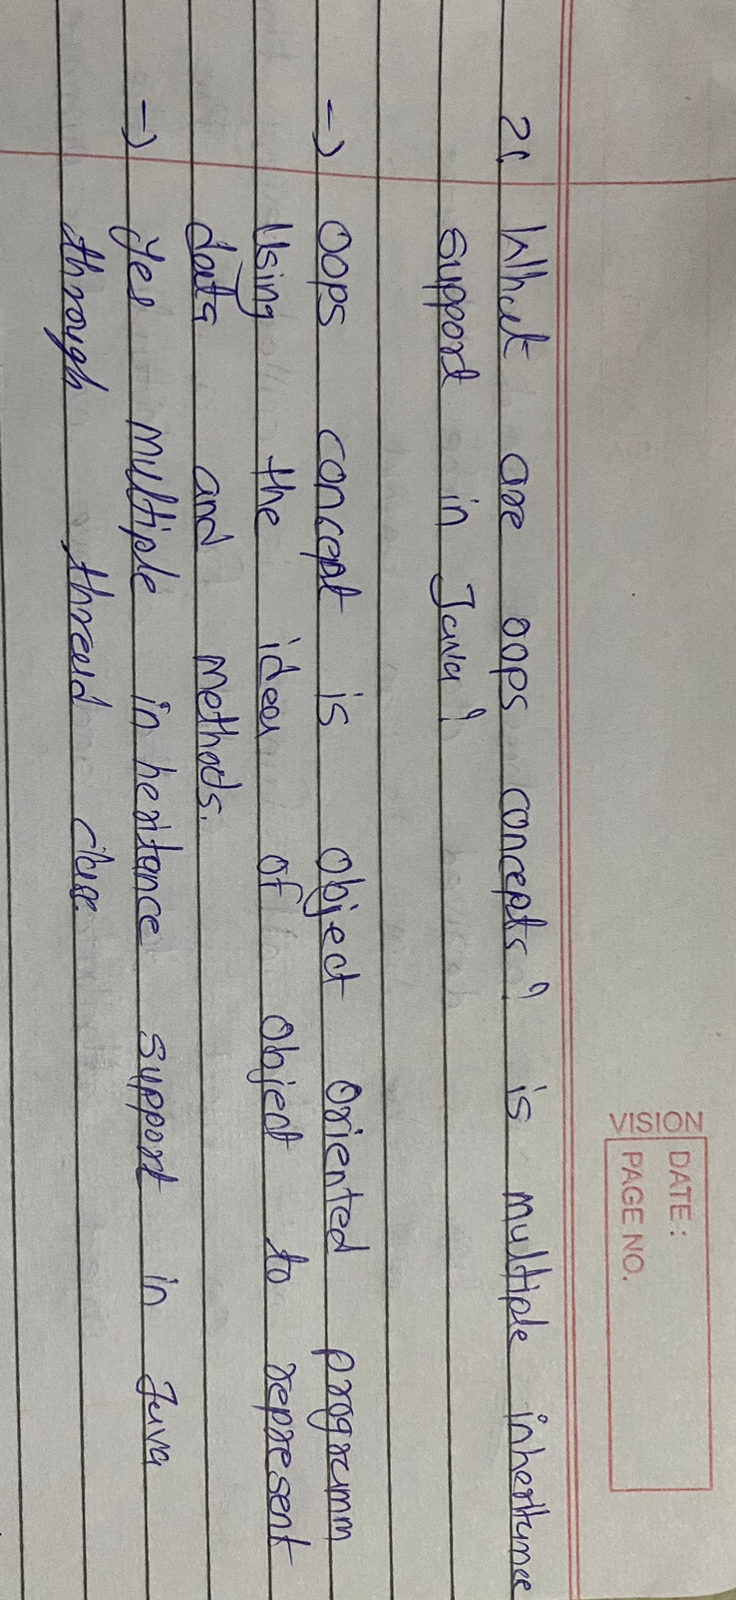 VISION
DATE:
PAGE NO.
2(. What are oops concepts? is multiple inheritance
support in Java?
-> OOPS concept is object oriented programm
using the idea of object to represent
data and methods.
-> Yes multiple inheritance support in Java
through thread